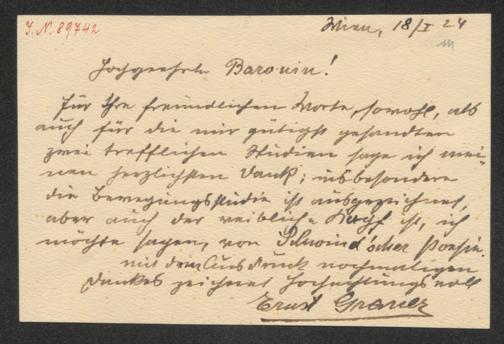 J. N. 89742
Wien, 18/I 24
Hochgeehrte Baronin!
Für Ihre freundlichen Worte, sowohl, als
auch für die mir gütigst gesandten
zwei trefflichen Studien sage ich mei-
nen herzlichsten Dank; insbesondere
die Bewegungsstudie ist ausgezeichnet,
aber auch der weibliche Kopf ist, ich
möchte sagen, von Schwind'scher Poesie.
mit dem Ausdruck nochmaligen
Dankes zeichnet hochachtungsvoll
Ernst